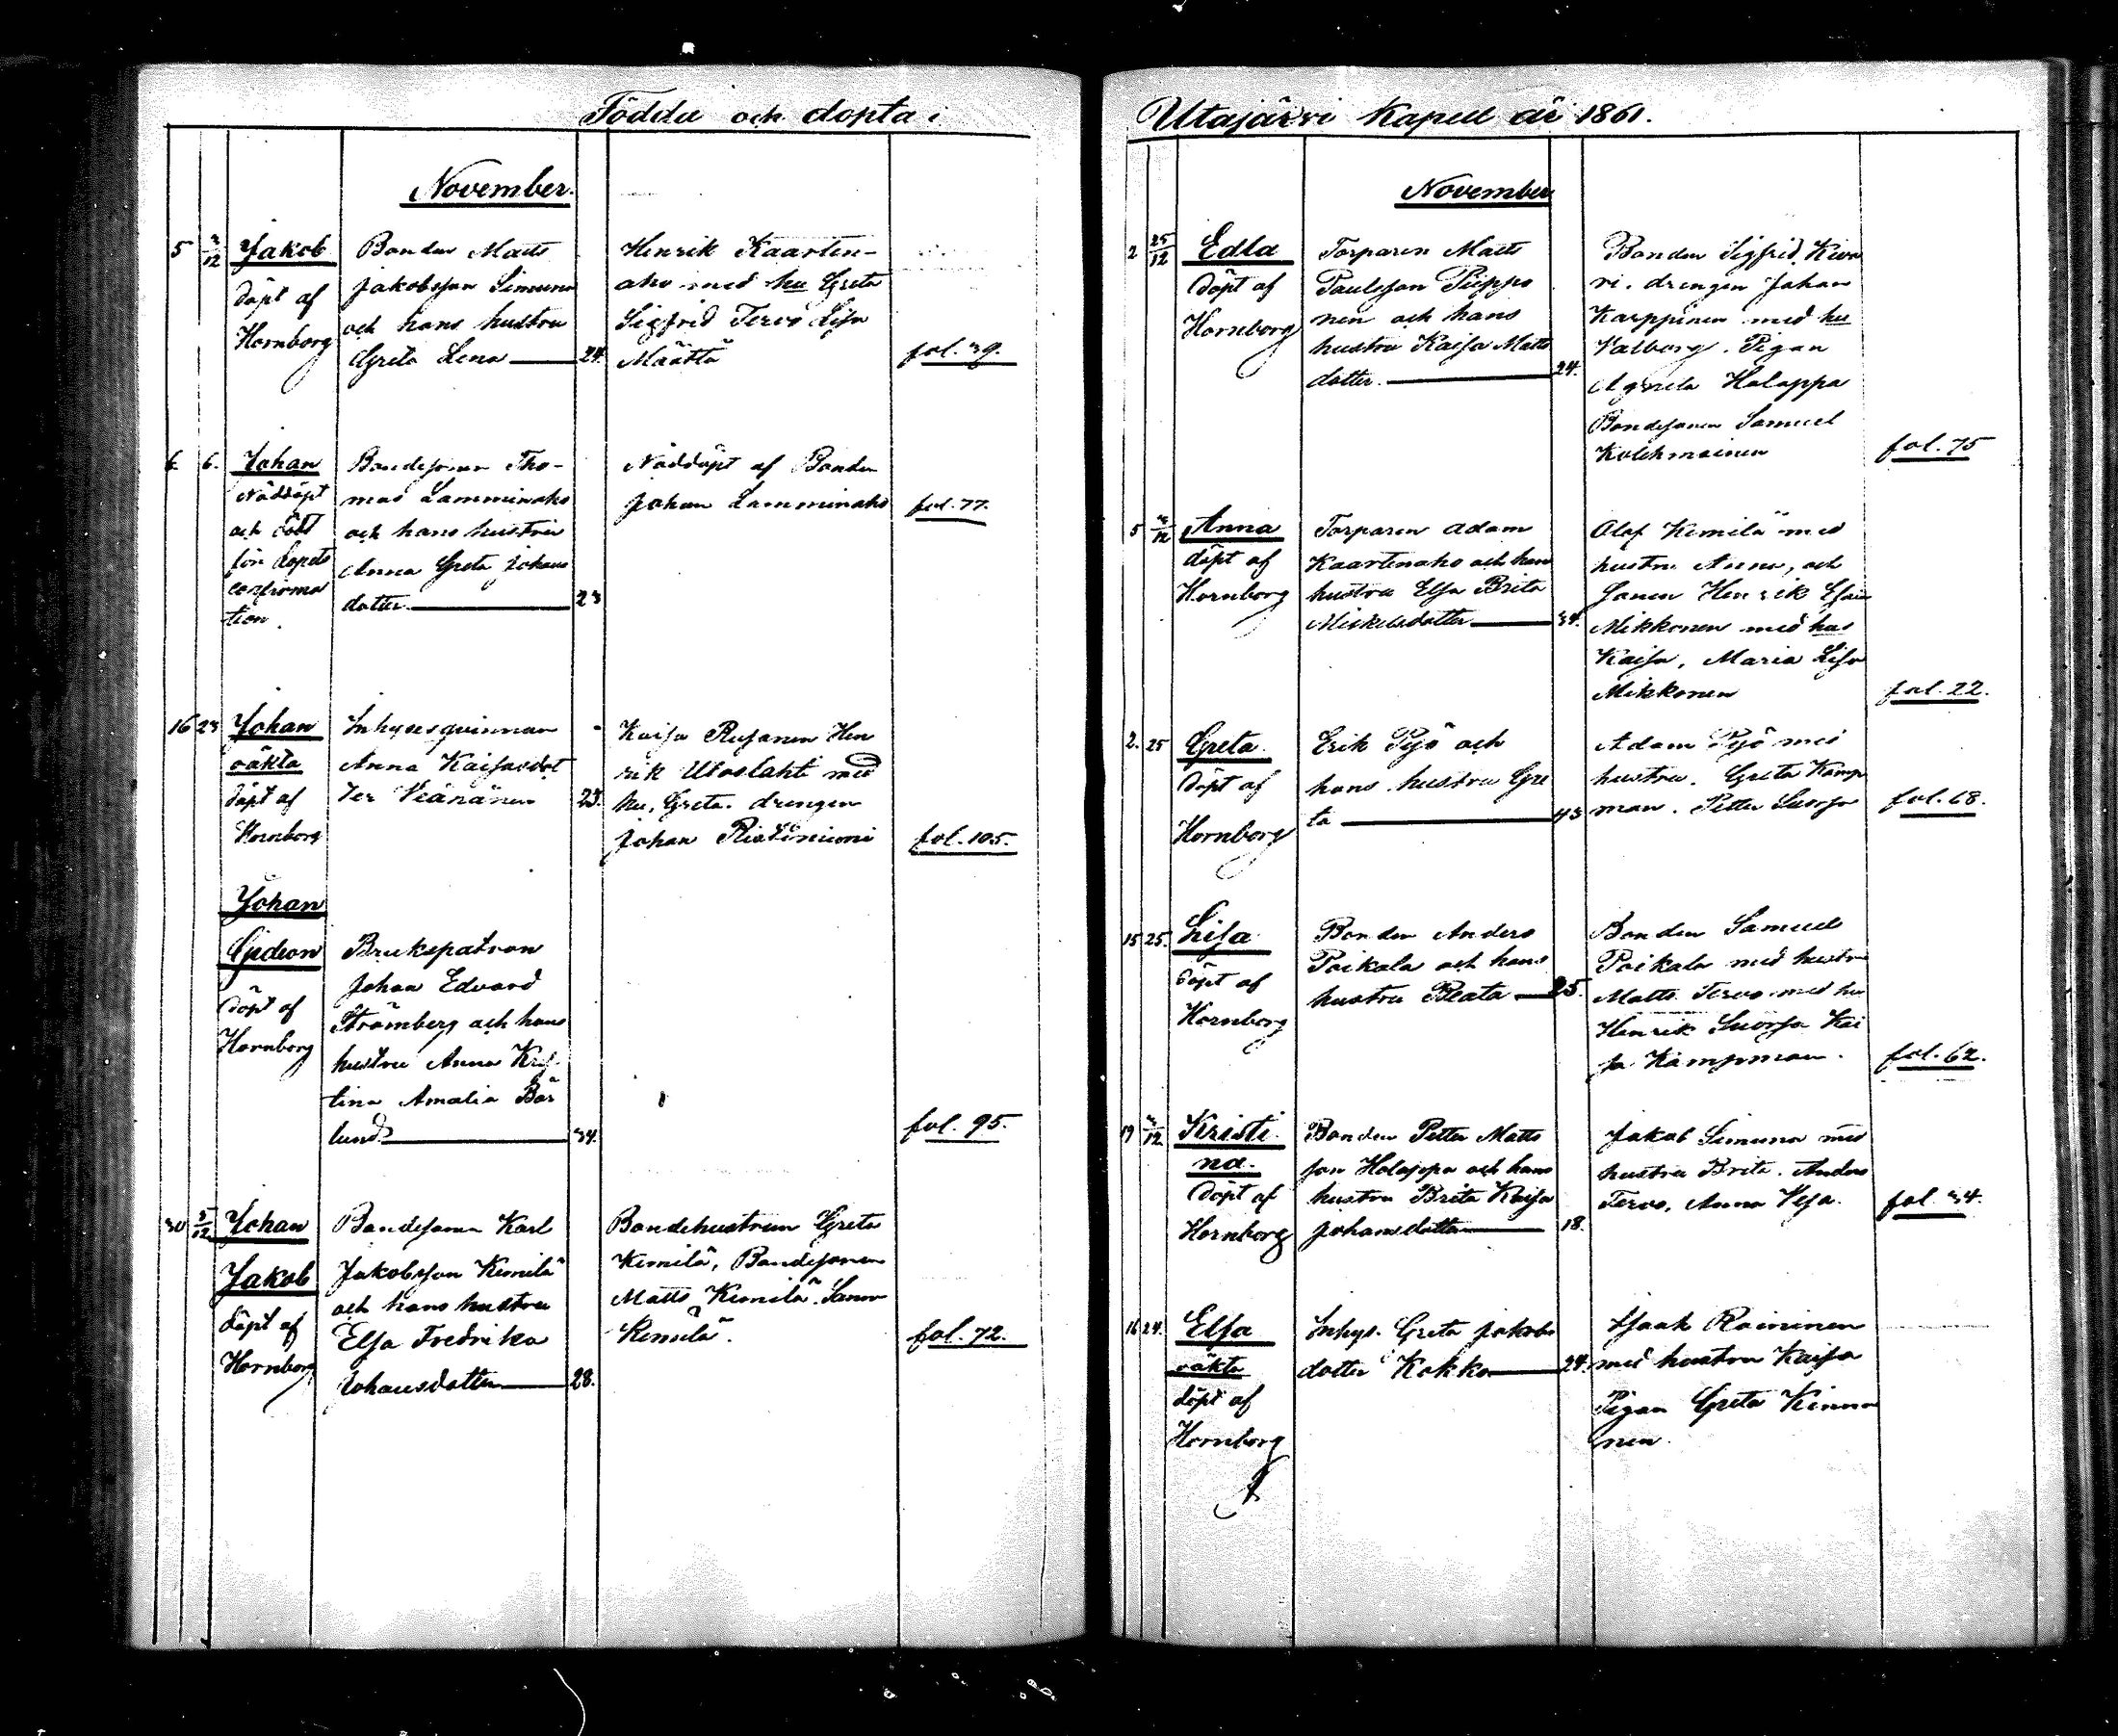 Födda och döpta i
November.
5 3/12 Jakob
döpt af
Hornborg
Bonden Matts
Jakobsson Simuna
och hans hustru
Greta Lena 24.
Henrik Kaarten-
aho med hu Greta
Sigfrid Tervo Lisa
Määttä
fol. 39.
6. 6. Johan
Nöddöpt
och död
för dopets
confirma
tion
Bondesonen Tho-
mas Lamminaho
och hans hustru
Anna Greta Johans
dotter 23
Nöddöpt af Bonden
Johan Lamminaho
fol. 77.
16 23 Johan
oäkta
döpt af
Hornborg
Inhysesqvinnan
Anna Kaisasdot
ter Väänänen 23.
Kaisa Rusanen Hen
rik Utoslahti med
hu. Greta. drengen
Johan Ristiniemi
fol. 105.
Johan
Gideon
döpt af
Hornborg
Brukspatron
Johan Edvard
Strömberg och hans
hustru Anna Kris
tina Amalia Bär
lund 34.
fol. 95.
30 5/12 Johan
Jakob
döpt af
Hornborg
Bondesonen Karl
Jakobsson Kemilä
och hans hustru
Elsa Fredrika
Johansdotter 28.
Bondehustrun Greta
Kemilä, Bondesonen
Matts Kemilä. Sanna
Kemilä.
fol. 72.
Utajärvi Kapell år 1861.
November
2 25/12 Edla
döpt af
Hornborg
Torparen Matts
Paulsson Piippo
nen och hans
hustru Kaisa Matts
dotter. 24.
Bonden Sigfrid Kiva
ri. drengen Johan
Karppinen med hu
Valborg. Pigan
Agneta Holappa
Bondesonen Samuel
Kolehmainen
fol. 75
5 3/12 Anna
döpt af
Hornborg
Torparen Adam
Kaartenaho och hans
hustru Elsa Brita
Mickelsdotter 34.
Olof Kemilä med
hustru Anna, och
Sonen Henrik Esaias
Mikkonen med hus
Kaisa, Maria Lisa
Mikkonen
fol. 22.
2. 25 Greta
döpt af
Hornborg
Erik Pyö och
hans hustru Gre
ta 43
Adam Pyö med
hustru. Greta Kamp
man. Petter Suorsa
fol. 68.
15 25. Lisa
döpt af
Hornborg
Bonden Anders
Poikala och hans
hustru Beata 25.
Bonden Samuel
Poikala med hustru
Matts Tervo med hu
Henrik Suorsa Kai
sa Kampman.
fol. 62.
19 3/12 Kristi
na.
döpt af
Hornborg
Bonden Petter Matts
son Holappa och hans
hustru Brita Kaisa
Johansdotter 18.
Jakob Simuna med
hustru Brita. Anders
Tervo, Anna Elsa.
fol. 34.
16 24. Elsa
oäkta
döpt af
Hornborg
Inhys. Greta Jakobs
dotter Kokko 24.
Isaak Roininen
med hustru Kaisa
Pigan Greta Kinnu
nen.